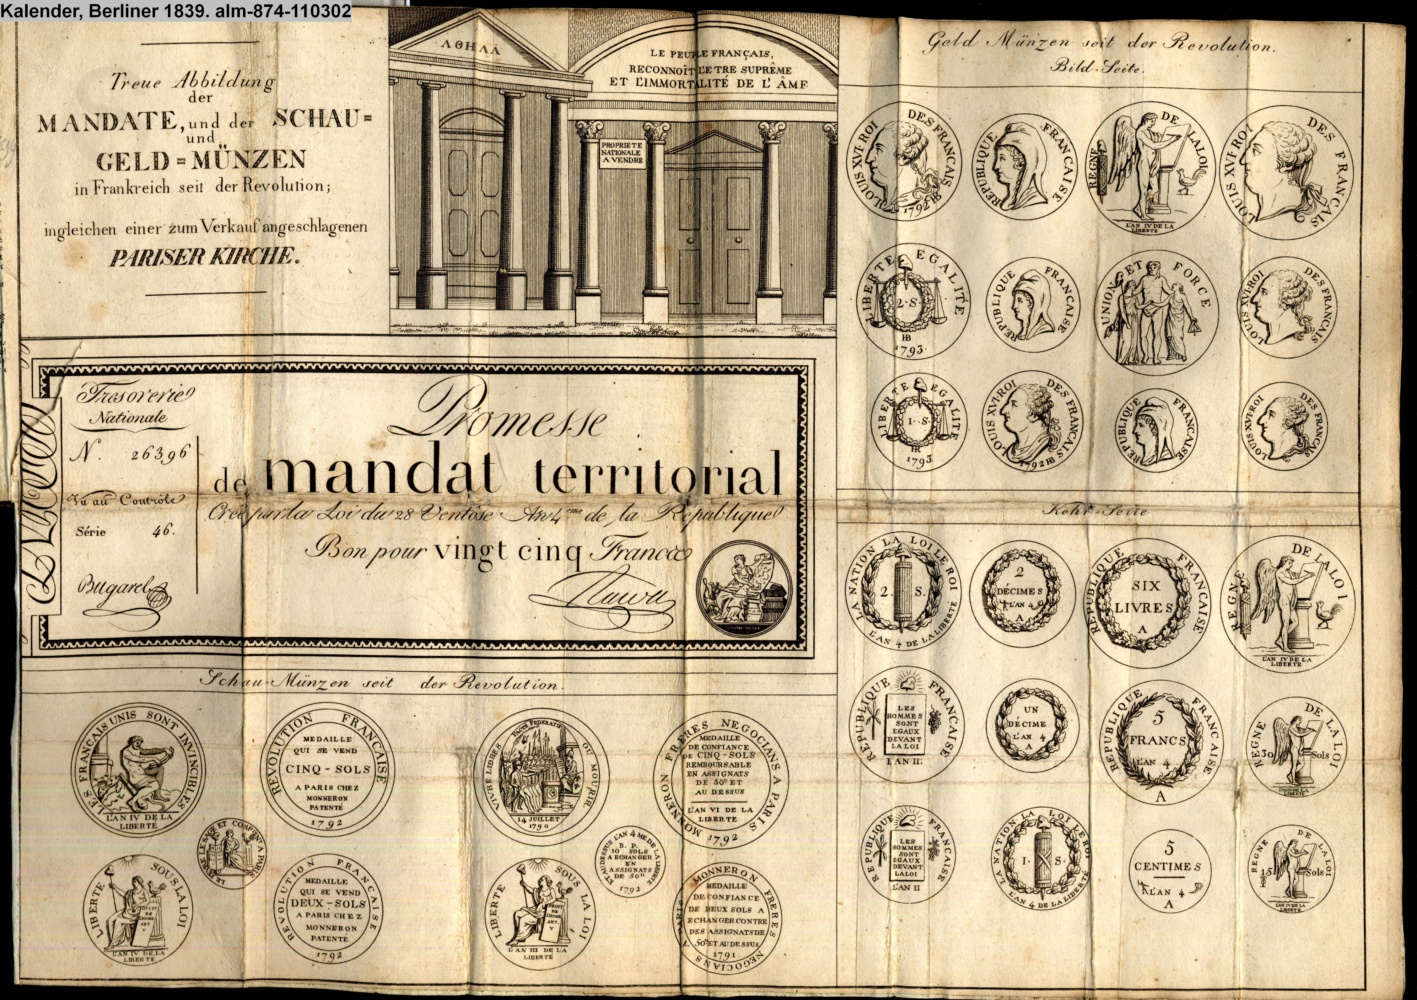 Kalender, Berliner 1839. alm-874-110302
Treue Abbildung
der
MANDATE, und der SCHAU=
und
GELD=MÜNZEN
in Frankreich seit der Revolution;
ingleichen einer zum Verkauf angeschlagenen
PARISER KIRCHE.
LE PEUPLE FRANÇAIS,
RECONNOÎT L'ETRE SUPRÊME
ET L'IMMORTALITÉ DE L'ÂMF
PROPRIETE
NATIONALE
A VENDRE
Tresorerie
Nationale
N. 26396
Vu au Contrôle
Série 46.
Bugarel
Promesse
de mandat territorial
Créé par la Loi du 28 Ventôse An 4eme de la République
Bon pour vingt cinq Francs
Schau-Münzen seit der Revolution.
LES FRANÇAIS UNIS SONT INVINCIBLES
L'AN IV DE LA
LIBERTÉ
REVOLUTION FRANÇAISE
MEDAILLE
QUI SE VEND
CINQ-SOLS
A PARIS CHEZ
MONNERON
PATENTÉ
1792
VIVRE LIBRES OU MOURIR
PACTE FEDERATIF
14 JUILLET
1790
MONNERON FRERES NEGOCIANS A PARIS
MEDAILLE
DE CONFIANCE
DE CINQ-SOLS
REMBOURSABLE
EN ASSIGNATS
DE 50tt ET
AU DESSUS
L'AN VI DE LA
LIBERTÉ
1792
LIBERTÉ SOUS LA LOI
L'AN IV DE LA
LIBERTÉ
REVOLUTION FRANÇAISE
MEDAILLE
QUI SE VEND
DEUX-SOLS
A PARIS CHEZ
MONNERON
PATENTÉ
1792
LIBERTÉ SOUS LA LOI
L'AN III DE LA
LIBERTÉ
L'AN 4ME DE LA LIBERTÉ
B. P.
10 SOLS
A ECHANGER
EN
ASSIGNATS
DE 50tt
ET AU DESSUS
1792
MONNERON FRERES NEGOCIANS
MEDAILLE
DE CONFIANCE
DE DEUX SOLS A
ECHANGER CONTRE
DES ASSIGNATS DE
50tt ET AU DESSUS
1791
Geld Münzen seit der Revolution.
Bild-Seite.
LOUIS XVI ROI DES FRANÇAIS
1792
REPUBLIQUE FRANÇAISE
REGNE DE LA LOI
L'AN IV DE LA
LIBERTÉ
LOUIS XVI ROI DES FRANÇAIS
LIBERTÉ EGALITÉ
2·S.
1793.
REPUBLIQUE FRANÇAISE
UNION ET FORCE
LOUIS XVI ROI DES FRANÇAIS
LIBERTÉ EGALITÉ
1·S.
1793
LOUIS XVI ROI DES FRANÇAIS
1792
REPUBLIQUE FRANÇAISE
LOUIS XVI ROI DES FRANÇAIS
Kehr-Seite
LA NATION LA LOI LE ROI
2. S.
L'AN 4 DE LA LIBERTÉ
2
DÉCIMES
L'AN 4
A
REPUBLIQUE FRANÇAISE
SIX
LIVRES
A
REGNE DE LA LOI
L'AN IV DE LA
LIBERTÉ
REPUBLIQUE FRANÇAISE
LES
HOMMES
SONT
EGAUX
DEVANT
LA LOI
L'AN II.
UN
DÉCIME
L'AN 4
A
REPUBLIQUE FRANÇAISE
5
FRANCS
L'AN 4
A
REGNE DE LA LOI
30 Sols
REPUBLIQUE FRANÇAISE
LES
HOMMES
SONT
EGAUX
DEVANT
LA LOI
L'AN II
LA NATION LA LOI LE ROI
1· S.
L'AN 4 DE LA LIBERTÉ
5
CENTIMES
L'AN 4
A
REGNE DE LA LOI
15 Sols